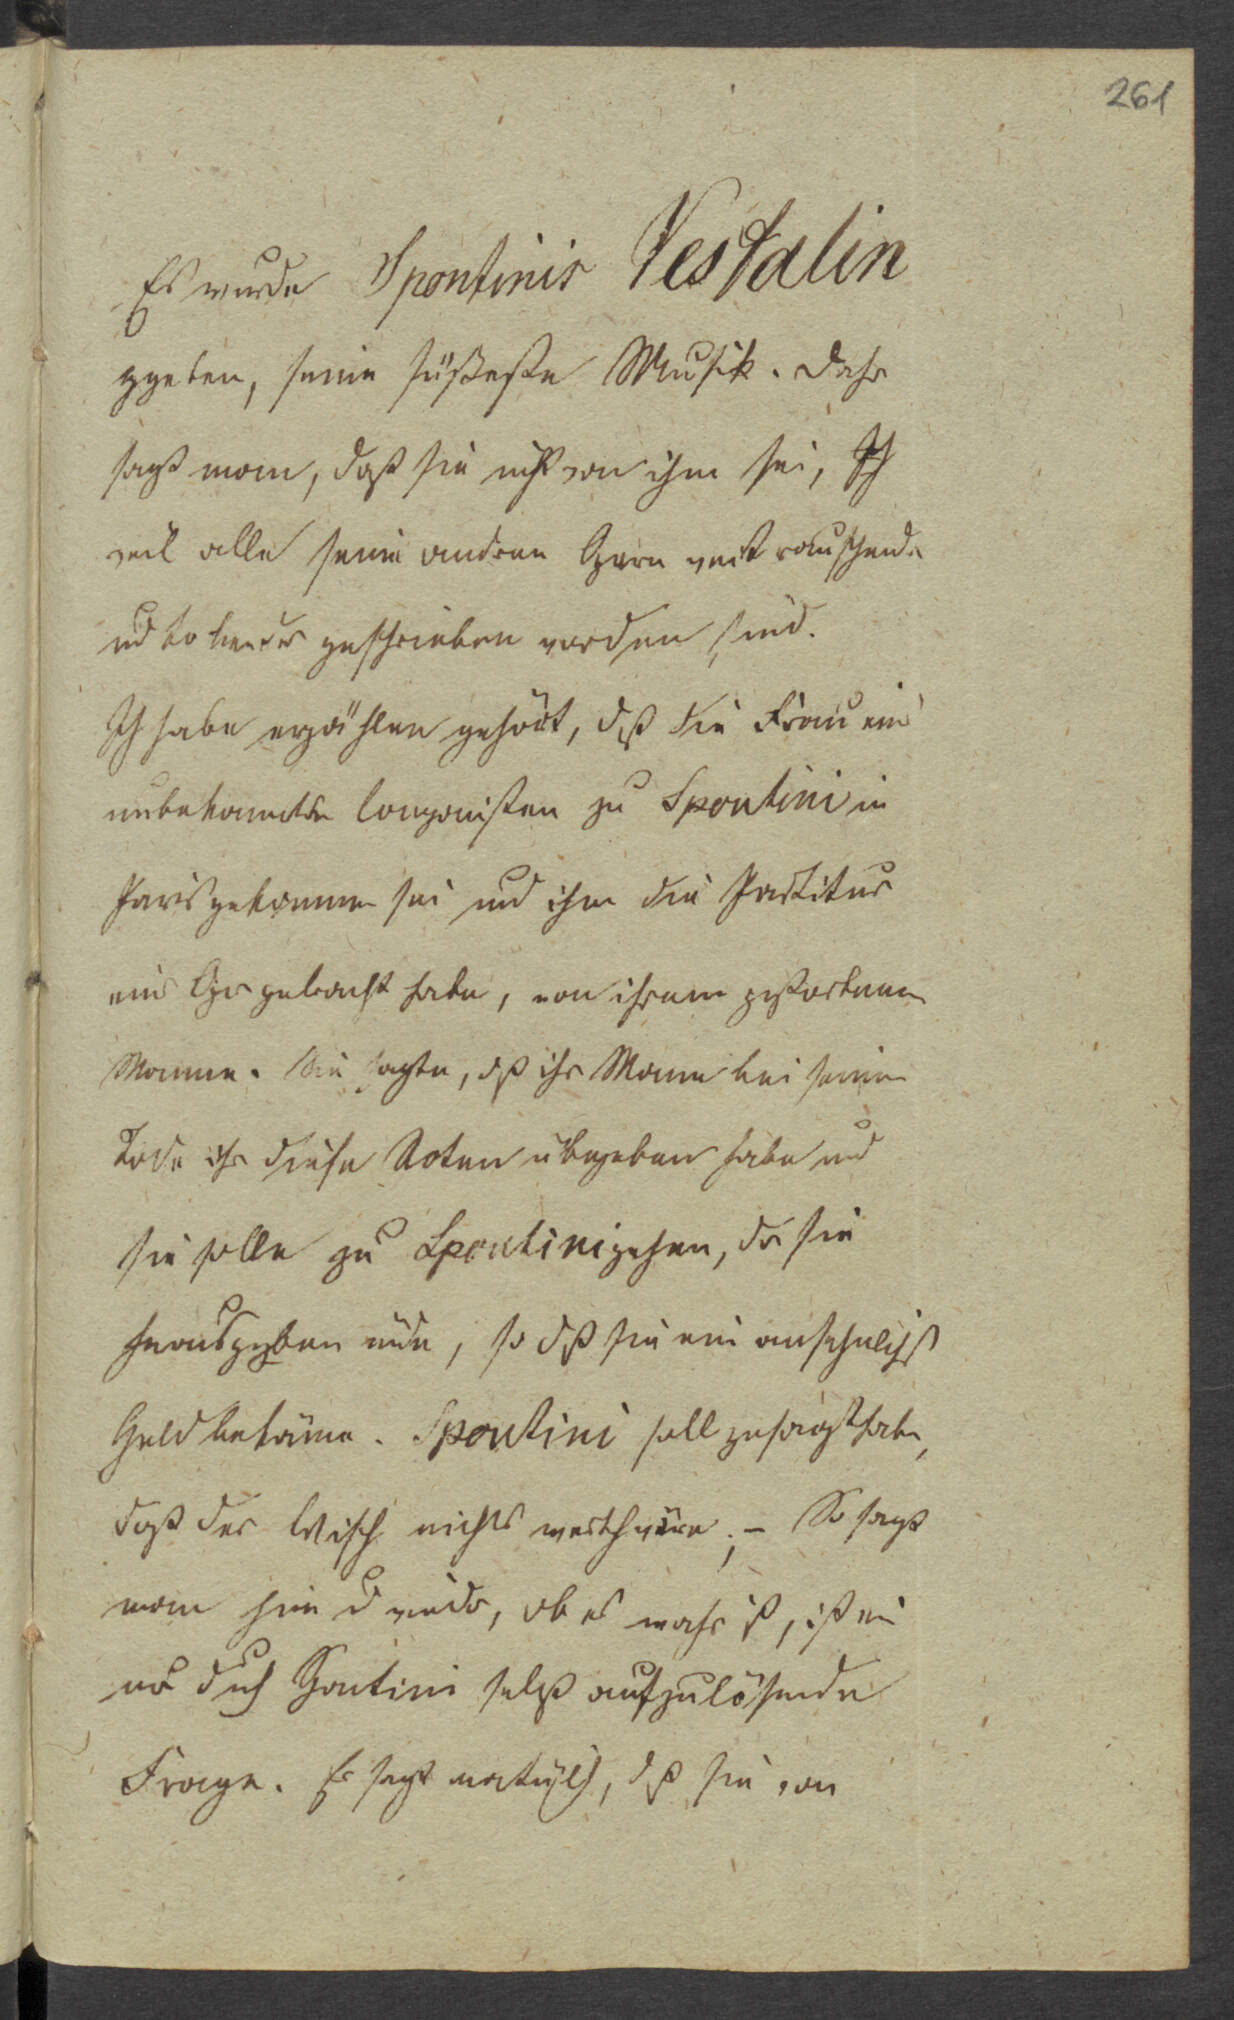 261
Es wurde Spontinis Vestalin
ggeben, seine süßeste Musik. Dahr
sagt man, daß sie nicht von ihm sei,
weil alle seine andren Opern weit rauschender
und tobender geschrieben worden sind.
Ich habe erzählen gehört, daß die Frau eines
unbekannten Componisten zu Spontini in
Paris gekommen sei und ihm die Partitur
einer Oper gebracht habe, von ihrem gestorbenen
Manne. Sie sagte, daß ihr Mann bei seinem
Tode ihr diese Noten übergeben habe und
sie solle zu Spontini gehen, der sie
herausgeben würde, so daß sie ein ansehnlichs
Geld bekäme. Spontini soll gesagt haben,
daß der Wisch nichts werth wäre; – So sagt
man hin und wieder, ob es wahr ist, ist ein
nur durch Spontini selbst aufzulösende
Frage. Er sagt natürlich, daß sie von